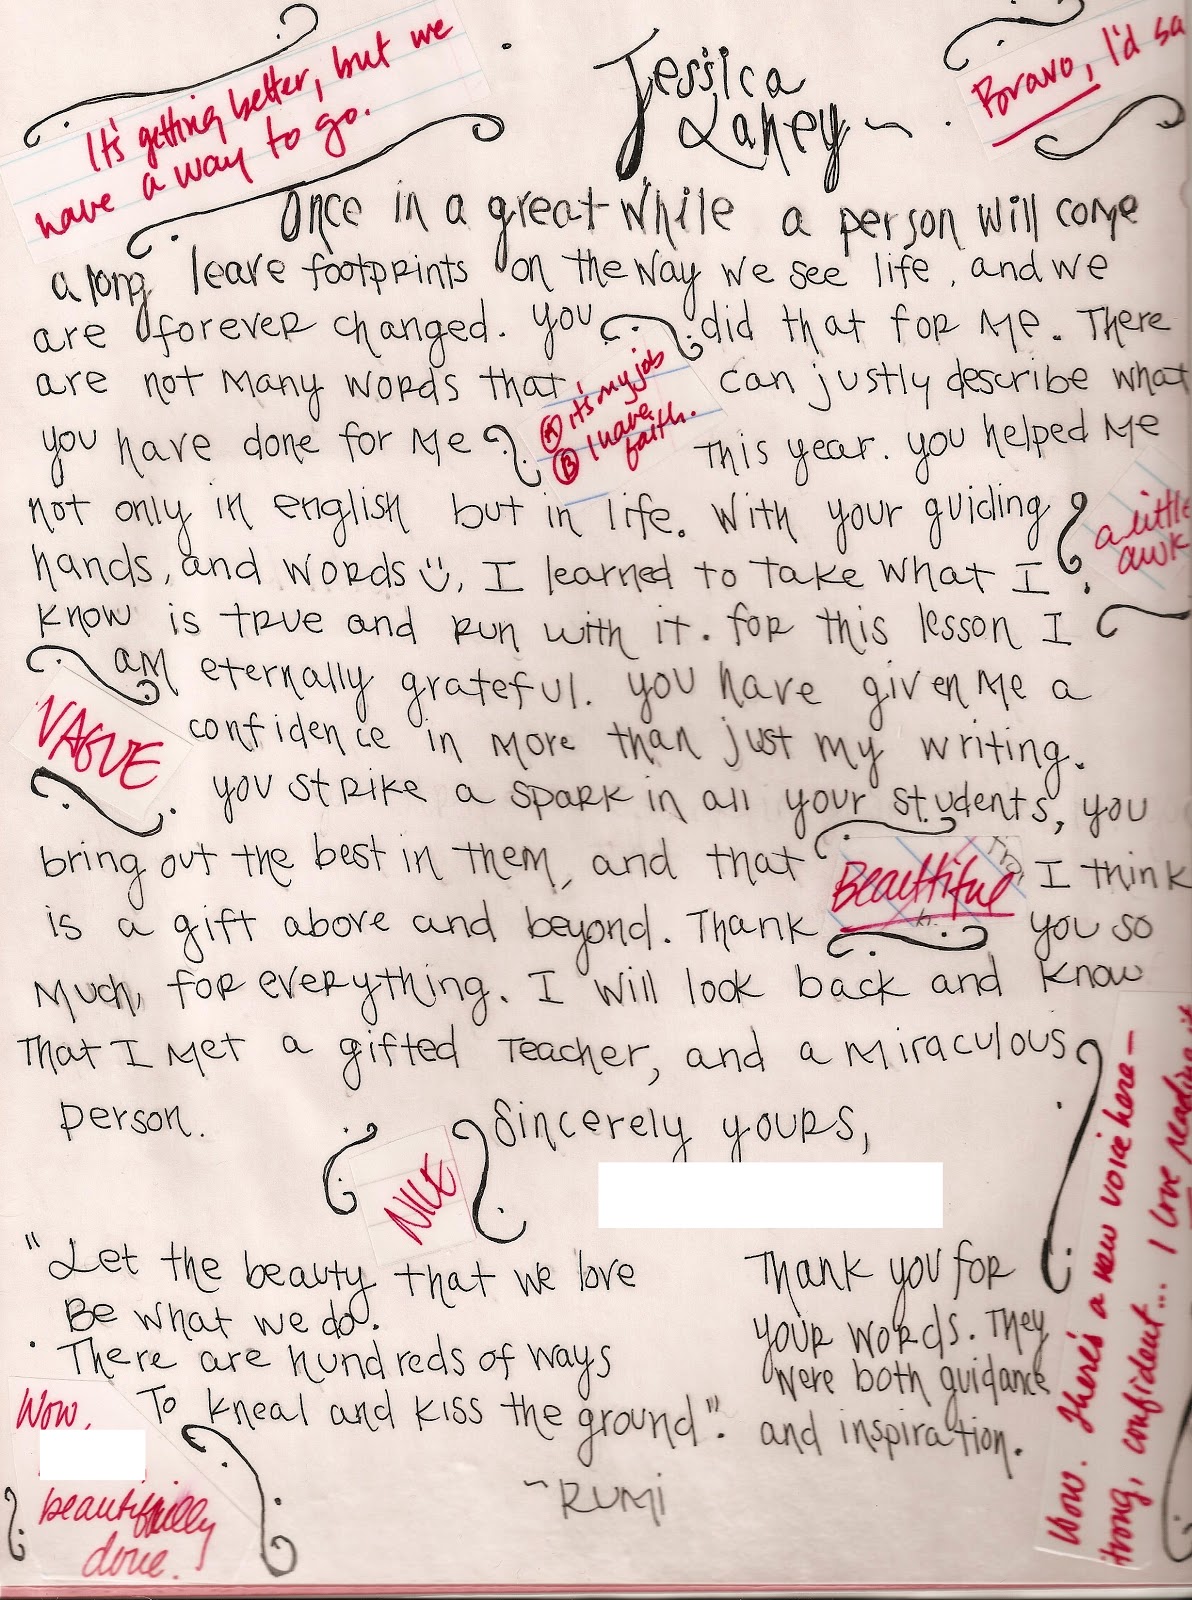 It's getting better, but we
have a way to go.
Jessica
Lahey
Bravo, I'd sa
Once in a great while a person will come
along leave footprints on the way we see life, and we
are forever changed. You did that for me. There
are not many words that can justly describe what
you have done for me this year. You helped me
(A) it's my job
(B) I have
faith.
not only in english but in life. With your guiding
hands, and words, I learned to take what I
a little
awk
know is true and run with it. for this lesson I
am eternally grateful. you have given me a
VAGUE
confidence in more than just my writing.
you strike a spark in all your students, you
bring out the best in them, and that I think
Beautiful
is a gift above and beyond. Thank you so
much, for everything. I will look back and know
that I met a gifted teacher, and a miraculous
person.
Sincerely yours,
NICE
"Let the beauty that we love
Be what we do.
There are hundreds of ways
To kneal and kiss the ground".
~RUMI
Thank you for
your words. They
were both guidance
and inspiration.
Wow,
beautifully
done.
Wow. There's a new voice here –
trong, confident... I love reading it